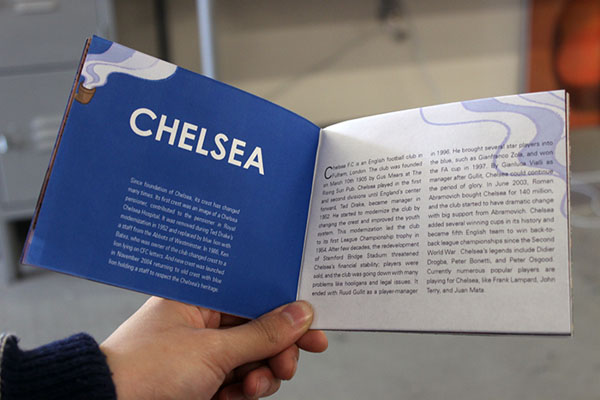 CHELSEA
Since foundation of Chelsea, its crest has changed
many time. Its first crest was an image of a Chelsea
pensioner, contributed to the pensioner in Royal
Chelsea Hospital. It was removed during Ted Drake's
modernization in 1952 and replaced by blue lion with
a staff from the Abbots of Westminster. In 1986, Ken
Bates, who was owner of the club changed crest to a
lion lying on CFC letters. And new crest was launched
in November 2004 returning to old with blue
lion holding a staff to respect the Chelsea's heritage
Chelsea F.C is an English football club in
Fulham, London. The club was founded
on March 10th 1905 by Gus Mears at The
Rising Sun Pub. Chelsea played in the first
and second divisions until England's center
forward, Ted Drake, became manager in
1952. He started to modernize the club by
changing the crest and improved the youth
system. This modernization led the club
to its first League Championship trophy in
1954. After few decades, the redevelopment
of Stamford Bridge Stadium threatened
Chelsea's financial stability, players were
wild, and the club was going down with many
problems like hooligans and legal issues. It
ended with Ruud Gullit as a player-manager
in 1996. He brought several star players into
the blue, such as Gianfranco Zola, and won
the FA cup in 1997. By Gianluca Vialli as
manager after Gullit, Chelsea could continue
the period of glory. In June 2003, Roman
Abramovich bought Chelsea for 140 million,
and the club started to have dramatic change
with big support from Abramovich. Chelsea
added several winning cups in its history and
became fifth English team to win back-to-
back league championships since the Second
World War. Chelsea's legends include Didier
Drogba, Peter Bonetti, and Peter Osgood.
Currently numerous popular players are
playing for Chelsea, like Frank Lampard, John
Terry, and Juan Mata.